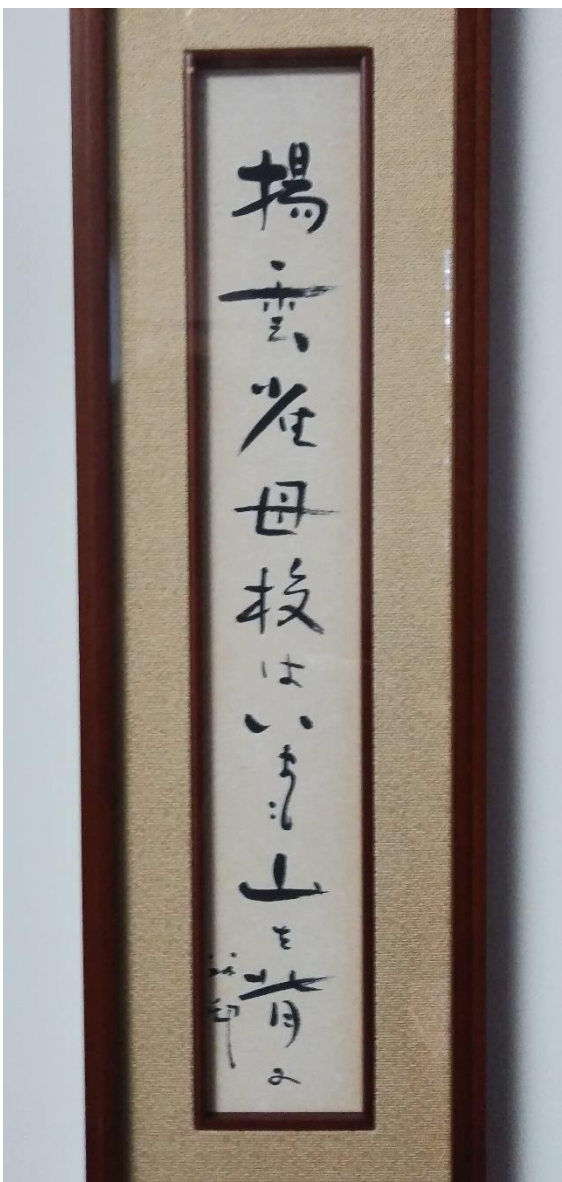 揚雲雀母校はいまも山を背に